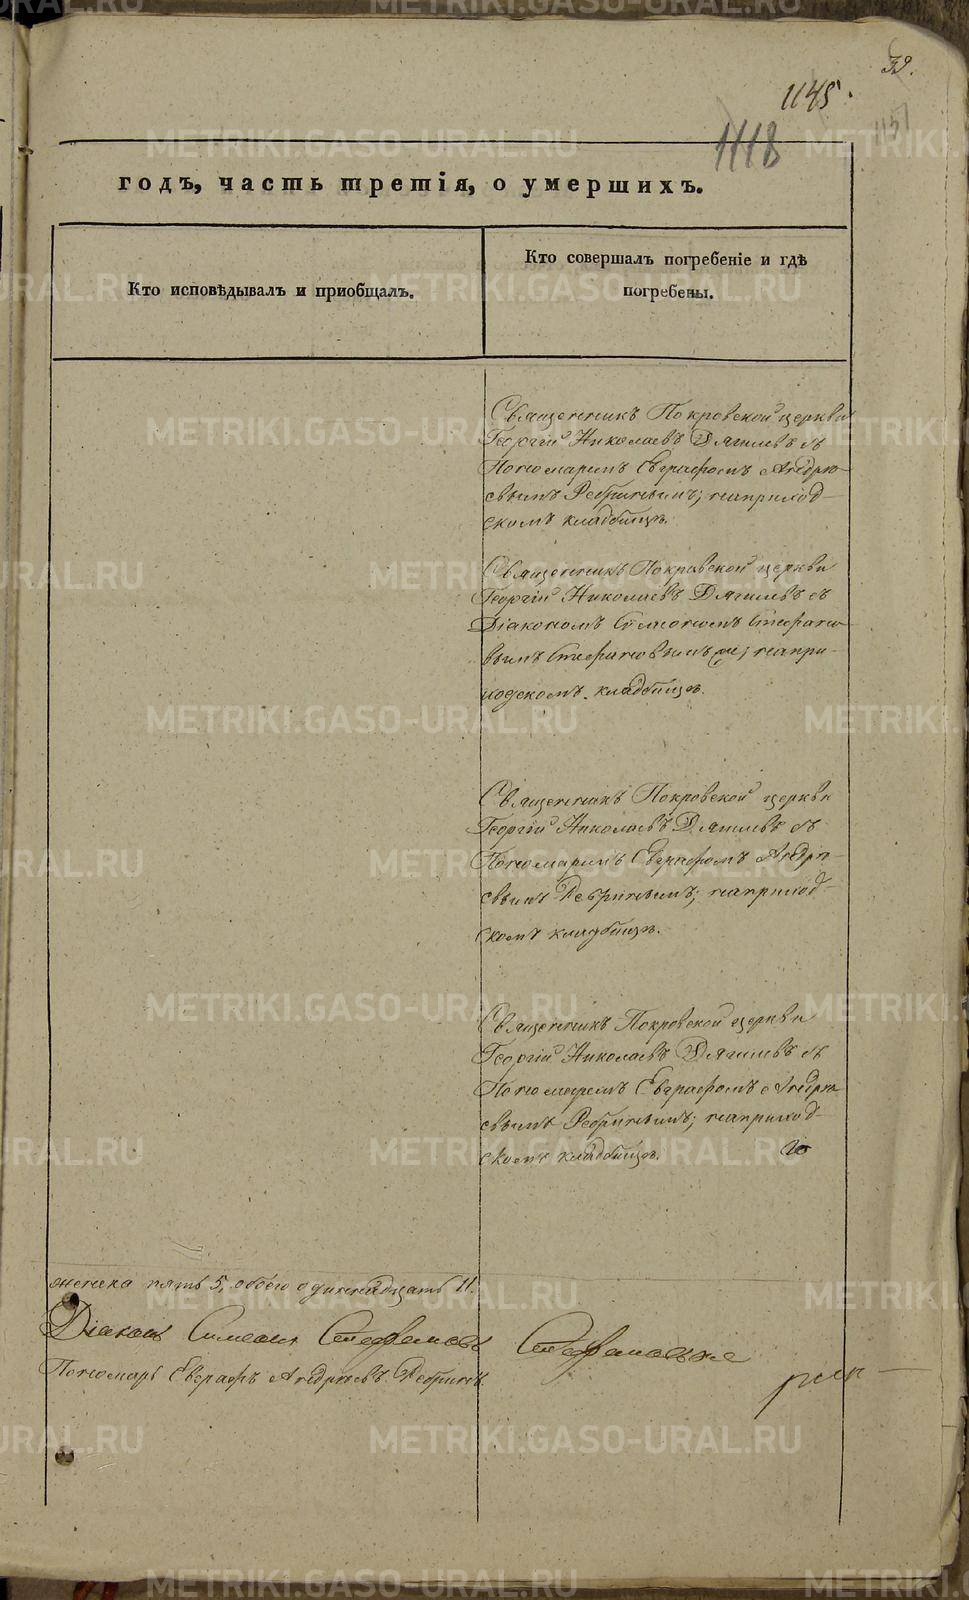 39.
1145.
1118
1151
годъ, часть третія, о умершихъ.
Кто исповѣдывалъ и пріобщалъ.
Кто совершалъ погребеніе и гдѣ
погребены.
Священникъ Покровской церкви
Георгій Николаевъ Дягилевъ съ
Пономаремъ Евграфомъ Андрее-
вымъ Ребринымъ; на приход-
скомъ кладбищѣ.
Священникъ Покровской церкви
Георгій Николаевъ Дягилевъ съ
Діакономъ Симеономъ Стефано-
вымъ Стефановымъ же; на при-
ходскомъ кладбищѣ.
Священникъ Покровской церкви
Георгій Николаевъ Дягилевъ съ
Пономаремъ Евграфомъ Андре-
евымъ Ребринымъ; на приход-
скомъ кладбищѣ.
Священникъ Покровской церкви
Георгій Николаевъ Дягилевъ съ
Пономаремъ Евграфомъ Андрее-
вымъ Ребринымъ; на приход-
скомъ кладбищѣ.
женска пять 5, обоего одиннадцать 11.
Діаконъ Симеонъ Стефановъ Стефановъ же
Пономарь Евграфъ Андреевъ Ребринъ
METRIKI.GASO-URAL.RU